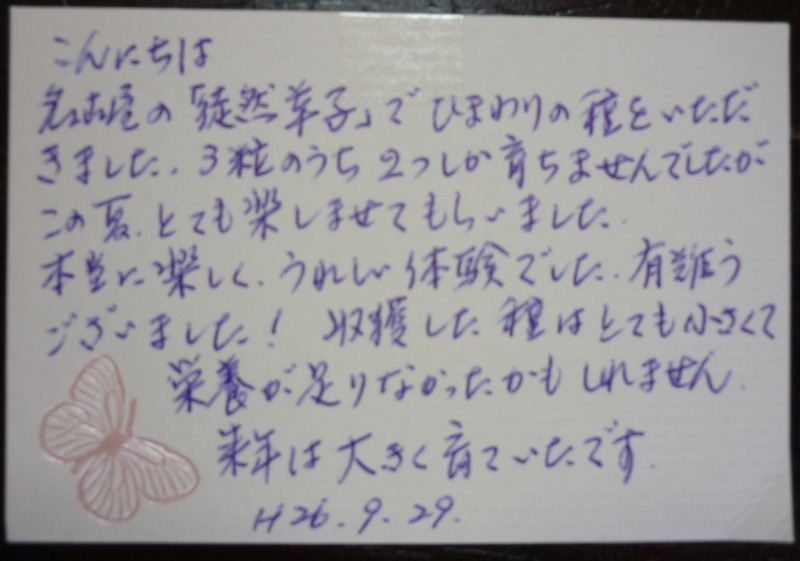 こんにちは
名古屋の「徒然草子」でひまわりの種をいただ
きました。3粒のうち2つしか育ちませんでしたが
この夏、とても楽しませてもらいました。
本当に楽しく、うれしい体験でした。有難う
ございました! 収獲した種はとても小さくて
栄養が足りなかったかもしれません。
来年は大きく育ていたです。
H26.9.29.